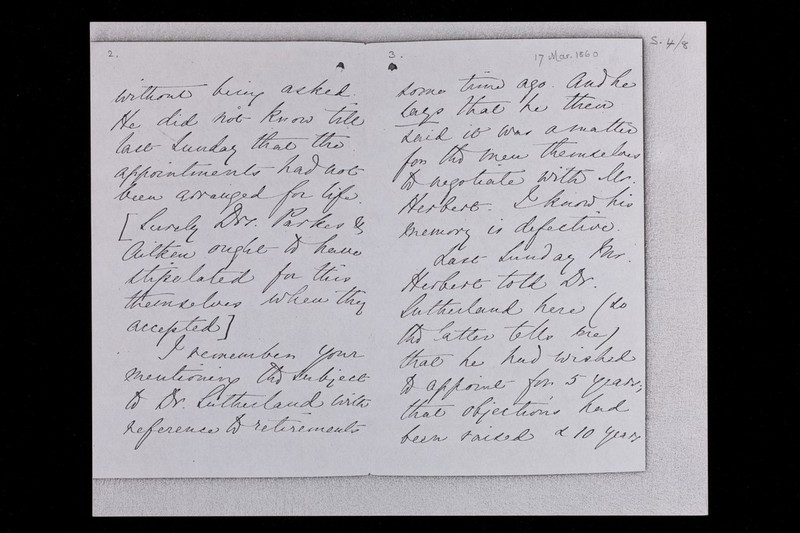 S. 4/8
2.
without being asked.
He did not know till
last Sunday that the
appointments had not
been arranged for life.
[Surely Drs. Parkes &
Aitken ought to have
stipulated for this
themselves when they
accepted]
I remember your
mentioning the subject
to Dr. Sutherland with
reference to retirements
3.
17 Mar. 1860
some time ago. And he
says that he then
said it was a matter
for the men themselves
to negotiate with Mr.
Herbert. I know his
memory is defective.
Last Sunday Mr.
Herbert told Dr.
Sutherland here (so
the latter tells me)
that he had wished
to appoint for 5 years;
that objections had
been raised & 10 years